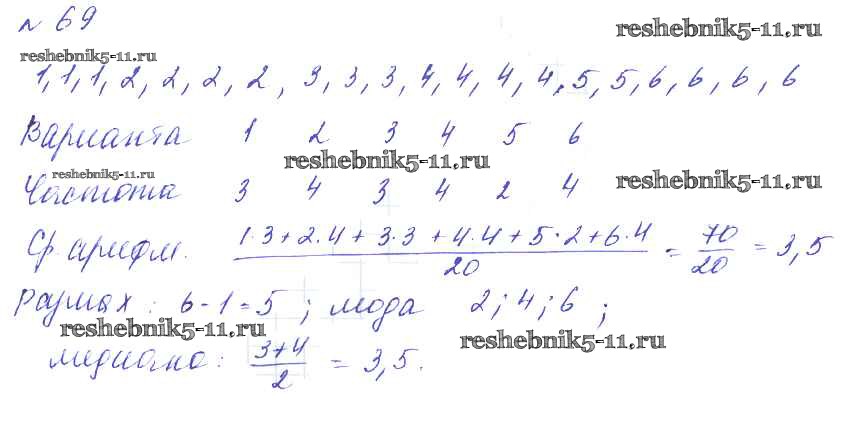 № 69
reshebnik5-11.ru
reshebnik5-11.ru
1, 1, 1, 2, 2, 2, 2, 3, 3, 3, 4, 4, 4, 4, 5, 5, 6, 6, 6, 6
Варианта 1 2 3 4 5 6
reshebnik5-11.ru
reshebnik5-11.ru
reshebnik5-11.ru
Частота 3 4 3 4 2 4
Ср. арифм. (1·3+2·4+3·3+4·4+5·2+6·4)/20 = 70/20 = 3,5
размах: 6-1=5; мода 2; 4; 6;
reshebnik5-11.ru
reshebnik5-11.ru
медиана: (3+4)/2 = 3,5.